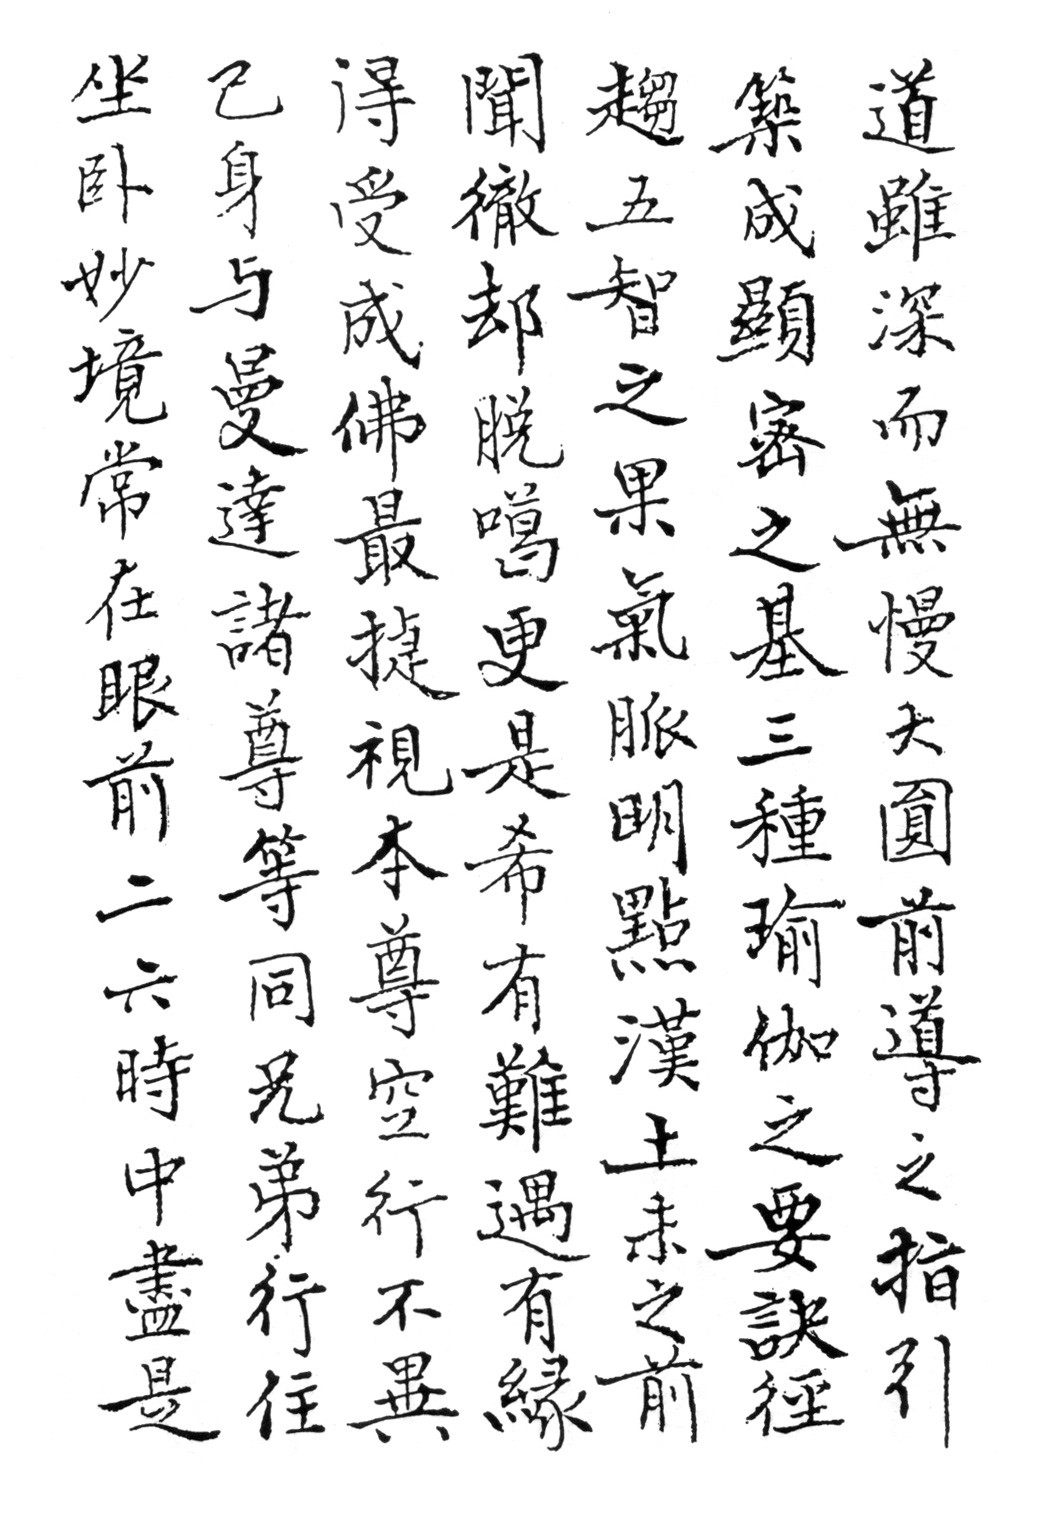 道雖深而無慢大圓前導之指引
築成顯密之基三種瑜伽之要訣徑
趨五智之果氣脈明點漢土未之前
聞徹却脫噶更是希有難遇有緣
得受成佛最捷視本尊空行不異
己身与曼達諸尊等同兄弟行住
坐卧妙境常在眼前二六時中盡是